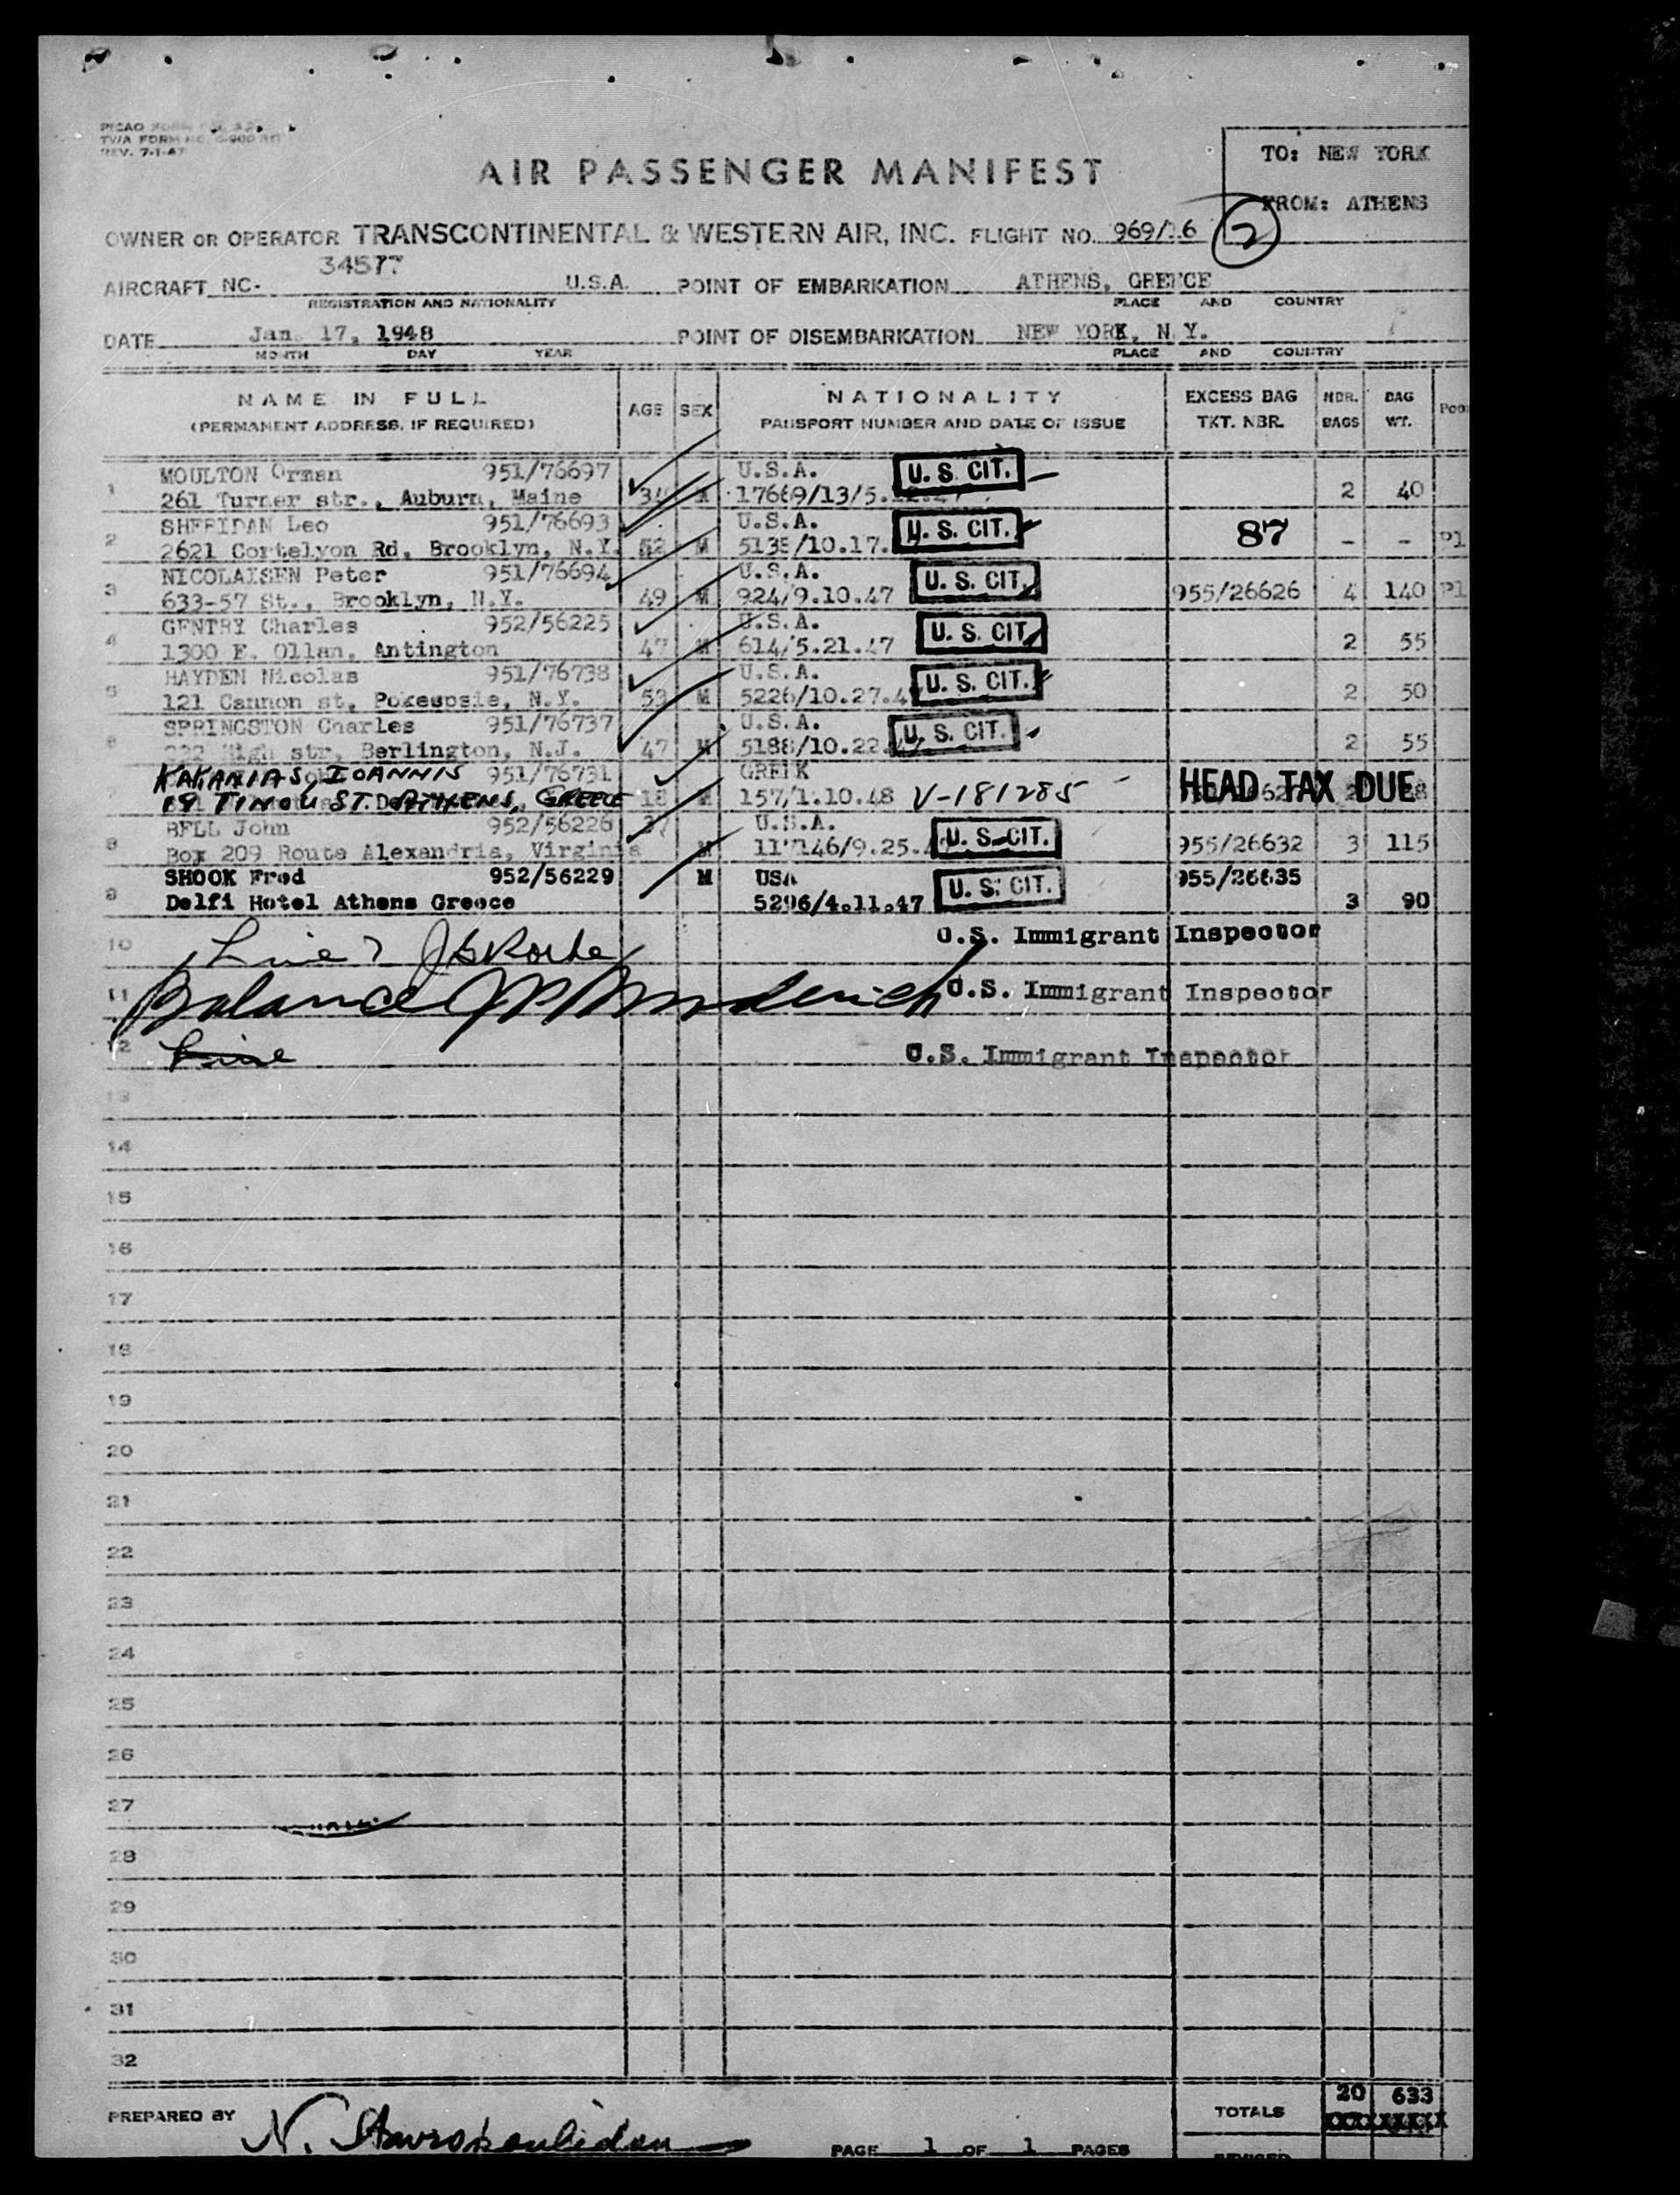 PICAO FORM
TWA FORM NO.
REV. 7-1-47
TO: NEW YORK
AIR PASSENGER MANIFEST
FROM: ATHENS
OWNER OR OPERATOR TRANSCONTINENTAL & WESTERN AIR, INC. FLIGHT NO. 969/16 2
34577
AIRCRAFT NC- U.S.A. POINT OF EMBARKATION ATHENS, GREECE
REGISTRATION AND NATIONALITY PLACE AND COUNTRY
DATE Jan. 17, 1948 POINT OF DISEMBARKATION NEW YORK, N.Y.
MONTH DAY YEAR PLACE AND COUNTRY
NAME IN FULL AGE SEX NATIONALITY EXCESS BAG NBR. BAG
(PERMANENT ADDRESS, IF REQUIRED) PASSPORT NUMBER AND DATE OF ISSUE TKT. NBR. BAGS WT.
1 MOULTON Orman 951/76697 U.S.A. U. S. CIT.
261 Turner str., Auburn, Maine 17669/13/5. 2 40
2 SHERIDAN Leo 951/76693 U.S.A. U. S. CIT. 87
2621 Cortelyon Rd, Brooklyn, N.Y. 52 M 5135/10.17. - - Pl
3 NICOLAISEN Peter 951/76694 U.S.A. U. S. CIT.
633-57 St., Brooklyn, N.Y. 49 M 924/9.10.47 955/26626 4 140 Pl
4 GENTRY Charles 952/56225 U.S.A. U. S. CIT.
1300 E. Ollan, Antington 47 M 614/5.21.47 2 55
5 HAYDEN Nicolas 951/76738 U.S.A. U. S. CIT.
121 Cannon st, Pokeupsie, N.Y. 53 M 5226/10.27.4 2 50
6 SPRINGSTON Charles 951/76737 U.S.A. U. S. CIT.
High str, Berlington, N.J. 47 M 5188/10.22. 2 55
KAKARIAS, IOANNIS 951/76731 GREEK HEAD TAX DUE
19 TINOU ST. ATHENS, GREECE 18 M 157/1.10.48 V-181285
8 BELL John 952/56226 37 U.S.A. U. S. CIT.
Box 209 Route Alexandria, Virginia M 117146/9.25. 955/26632 3 115
9 SHOOK Fred 952/56229 M USA U. S. CIT. 955/26635
Delfi Hotel Athens Greece 5296/4.11.47 3 90
10 Line 7 U.S. Immigrant Inspector
11 Balance U.S. Immigrant Inspector
12 Line U.S. Immigrant Inspector
13
14
15
16
17
18
19
20
21
22
23
24
25
26
27
28
29
30
31
32
20 633
PREPARED BY N. TOTALS
PAGE 1 OF 1 PAGES